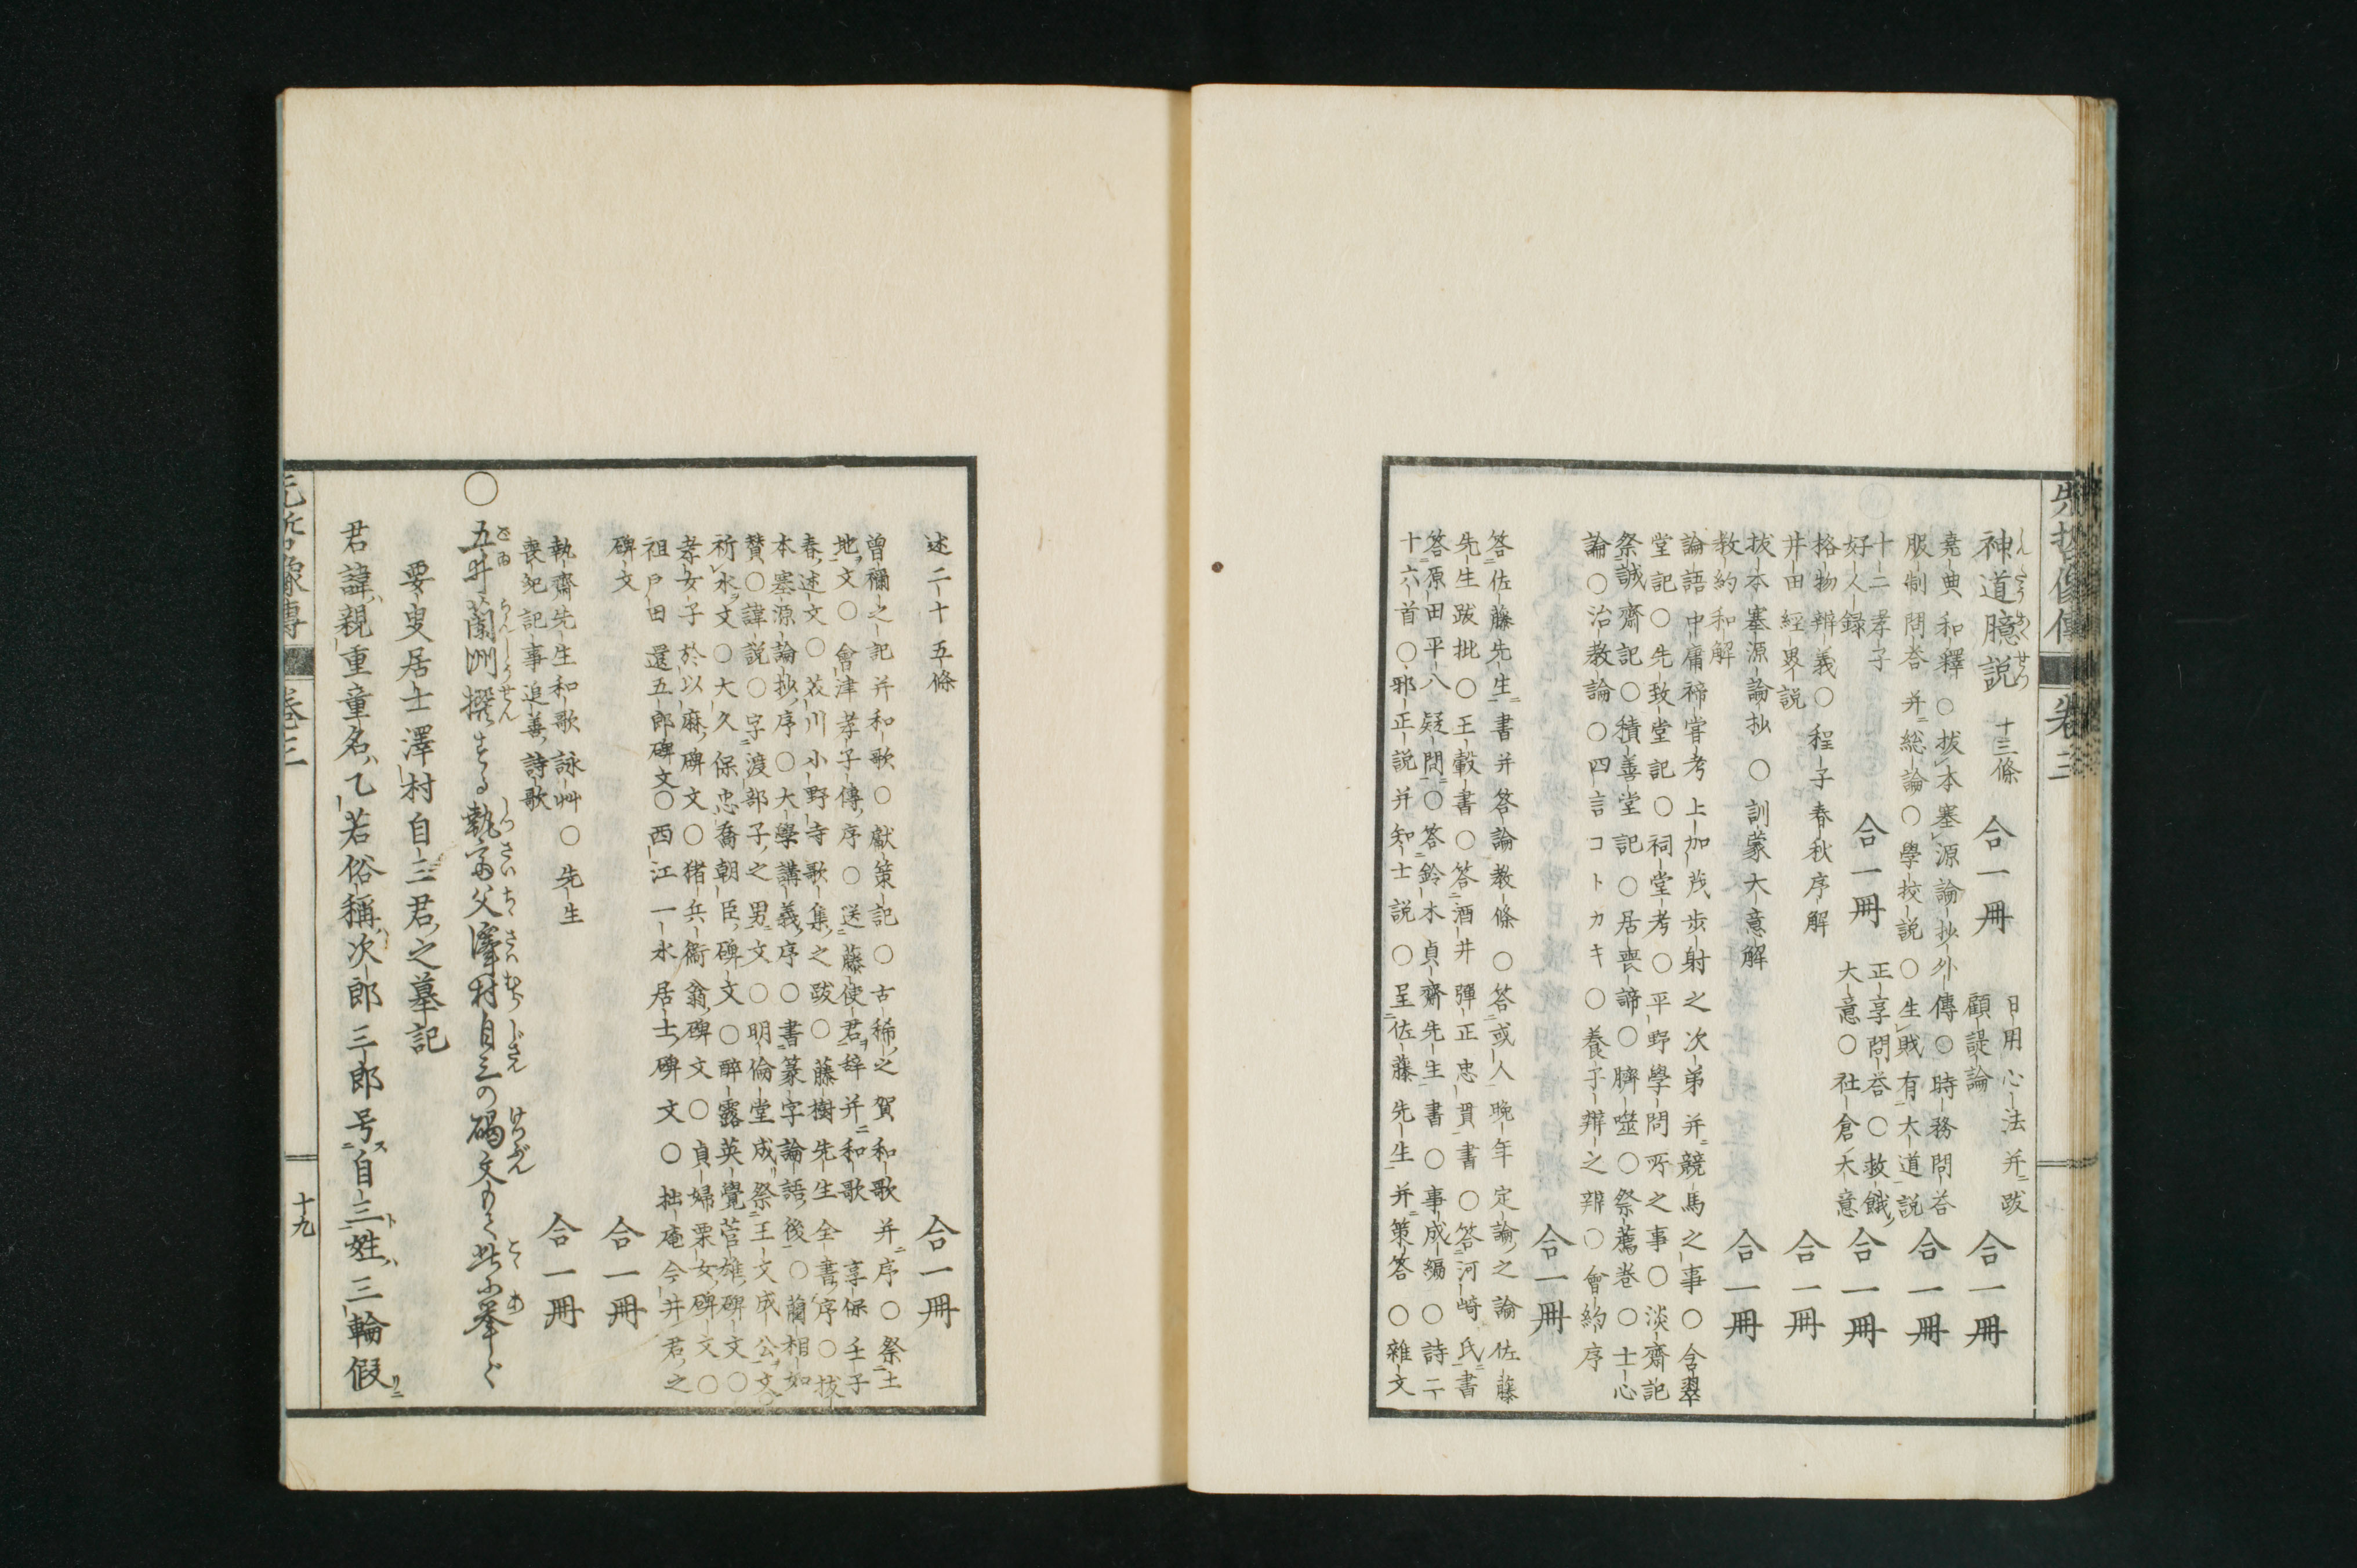 先哲像傳 卷三
神道臆説 十三條 合一冊 日用心法并ニ跋 顧諟論 合一冊
堯典和釋 ○拔本塞源論抄外傳○時務問荅
服制問荅并ニ総論○學挍説○生財有大道説 合一冊
十二孝子
好人録 合一冊 正享問荅○救餓ノ
大意○社倉大意 合一冊
格物辨義○程子春秋序解
井田經界説 合一冊
拔本塞源論抄 ○訓蒙大意解
教約和解 合一冊
論語中庸禘嘗考 上加茂歩射之次第并ニ競馬之事○含翠
堂記○先致堂記○祠堂考○平野學問所之事○淡齋記
祭誠齋記○積善堂記○居喪諦○臍噬○祭薦巻○士心
論○治教論○四言コトカキ○養子辨之辨○會約序
合一冊
答佐藤先生書并答論教條○答或人晩年定論之論佐藤
先生跋批○王轂書○答酒井彈正忠買書○答河崎氏書
答原田平八疑問○答鈴木貞齋先生書○事成編○詩二
十六首○邪正説并知士説○呈佐藤先生并策答○雜文
述二十五條 合一冊
曽禰之記并和歌○獻策記○古稀之賀和歌并ニ序○祭土
地文○會津孝子傳序○送藤使君辞并ニ和歌 享保壬子
春述文○衣川小野寺歌集之跋○藤樹先生全書序○拔
本塞源論抄序○大學講義序○書篆字論語後○藺相如
賛○諱説○字渡部子之男文○明倫堂成祭王文成公文○
祈水文○大久保忠喬朝臣碑文○醉露英覺菅雄碑文○
孝女子於以麻碑文○猪兵衞翁碑文○貞婦栗女碑文○
祖戸田還五郎碑文○西江一水居士碑文○拙庵今井君之
碑文 合一冊
執齋先生和歌詠艸○先生
喪紀記事追善詩歌 合一冊
○五井蘭洲撰する執齋父澤村自三の碣文もて此に挙ぐ
要叟居士澤村自三君之墓記
君諱親重童名乙若俗稱次郎三郎号ス自三ト姓三輪假リニ
先哲像傳 卷三 十九